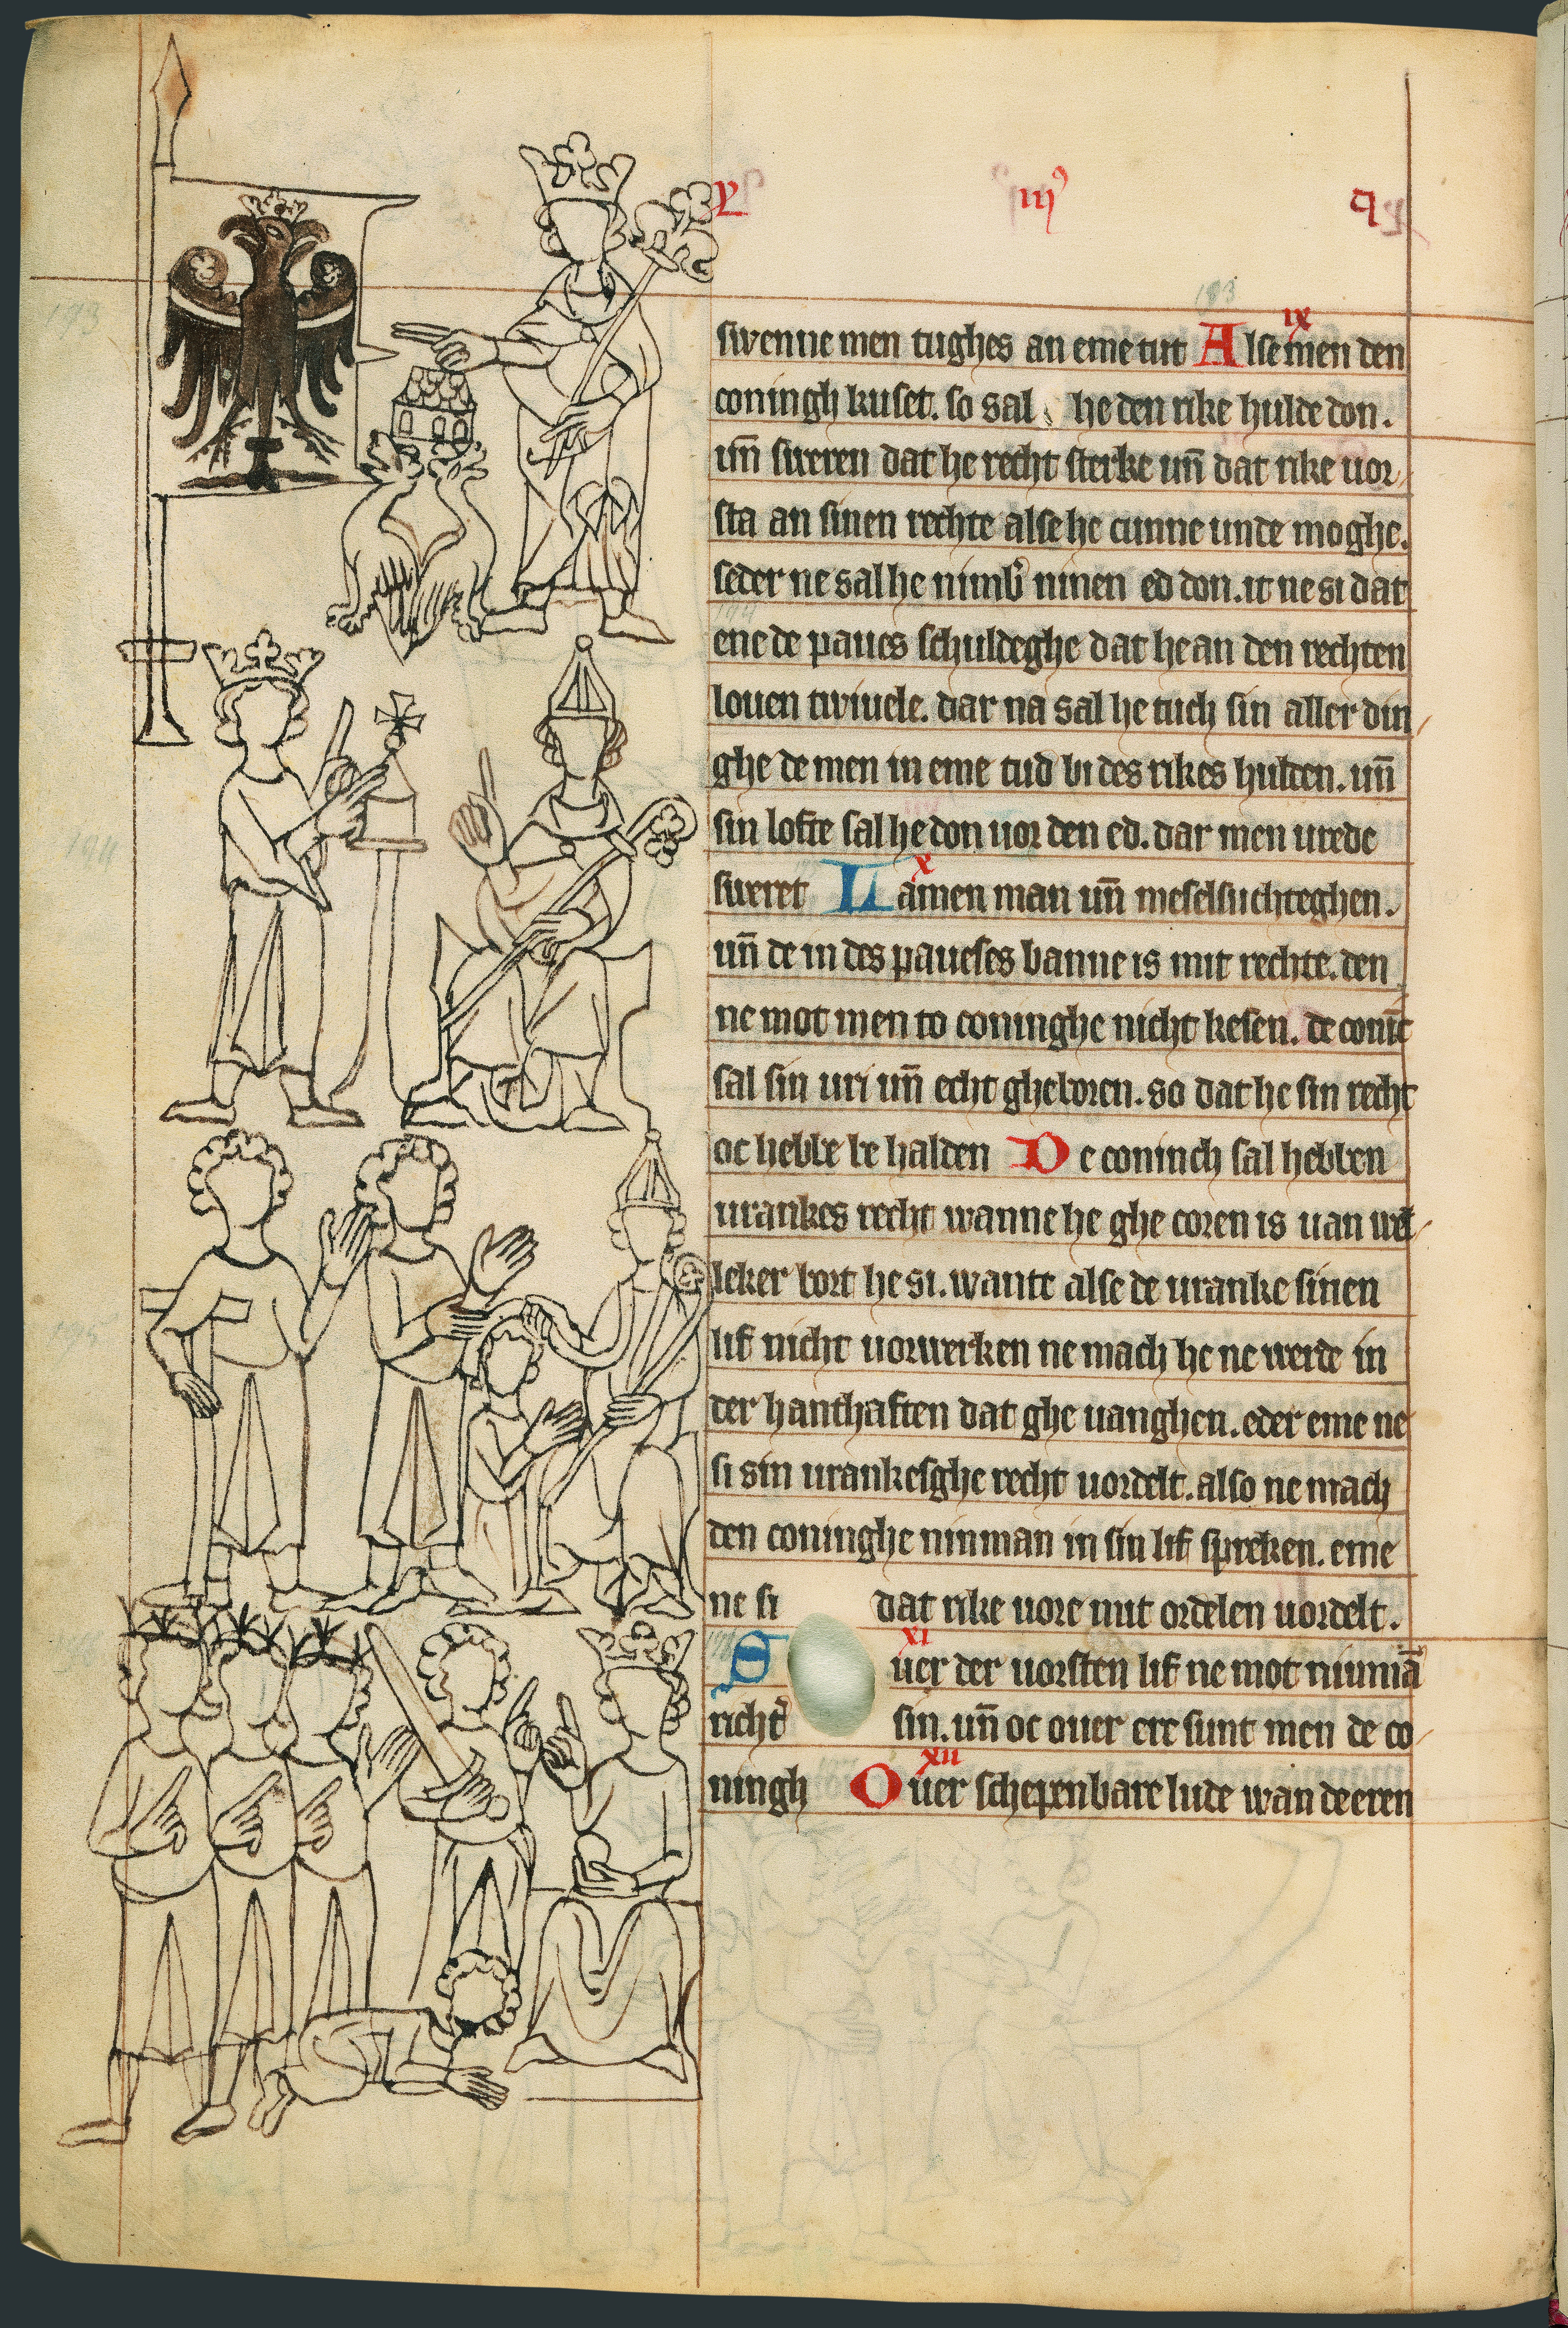 ix
swenne men tughes an eme tut Alse men den
coningh kuset. so sal he den rike hulde don.
un̄ sweren dat he recht sterke un̄ dat rike uor
sta an sinen rechte alse he cunne unde moghe.
seder ne sal he nimb̾ ninen ed don. it ne si dat
ene de paues schuldeghe dat he an den rechten
louen twiuele. dar na sal he tuch sin aller din
ghe de men in eme tud bi des rikes hulden. un̄
sin lofte sal he don uor den ed. dar men urede
x
sweret Lamen man un̄ meselsuchteghen.
un̄ de in des paueses banne is mit rechte. den
ne mot men to coninghe nicht kesen. de conīc
sal sin uri un̄ echt gheboren. so dat he sin recht
oc hebbe be halden De coninch sal hebben
urankes recht wanne he ghe coren is uan wel
leker bort he si. wante alse de uranke sinen
lif nicht uorwerken ne mach he ne werde in
der hanthaften dat ghe uanghen. eder eme ne
si sin urankesghe recht uordelt. also ne mach
den coninghe ninman in sin lif spreken. eme
ne si dat rike uore mit ordelen uordelt.
xi
Ouer der uorsten lif ne mot ninmā
richt̾ sin. un̄ oc ouer ere sunt men de co
xii
ningh Ouer schepenbare lude wan de eren
193
194
195